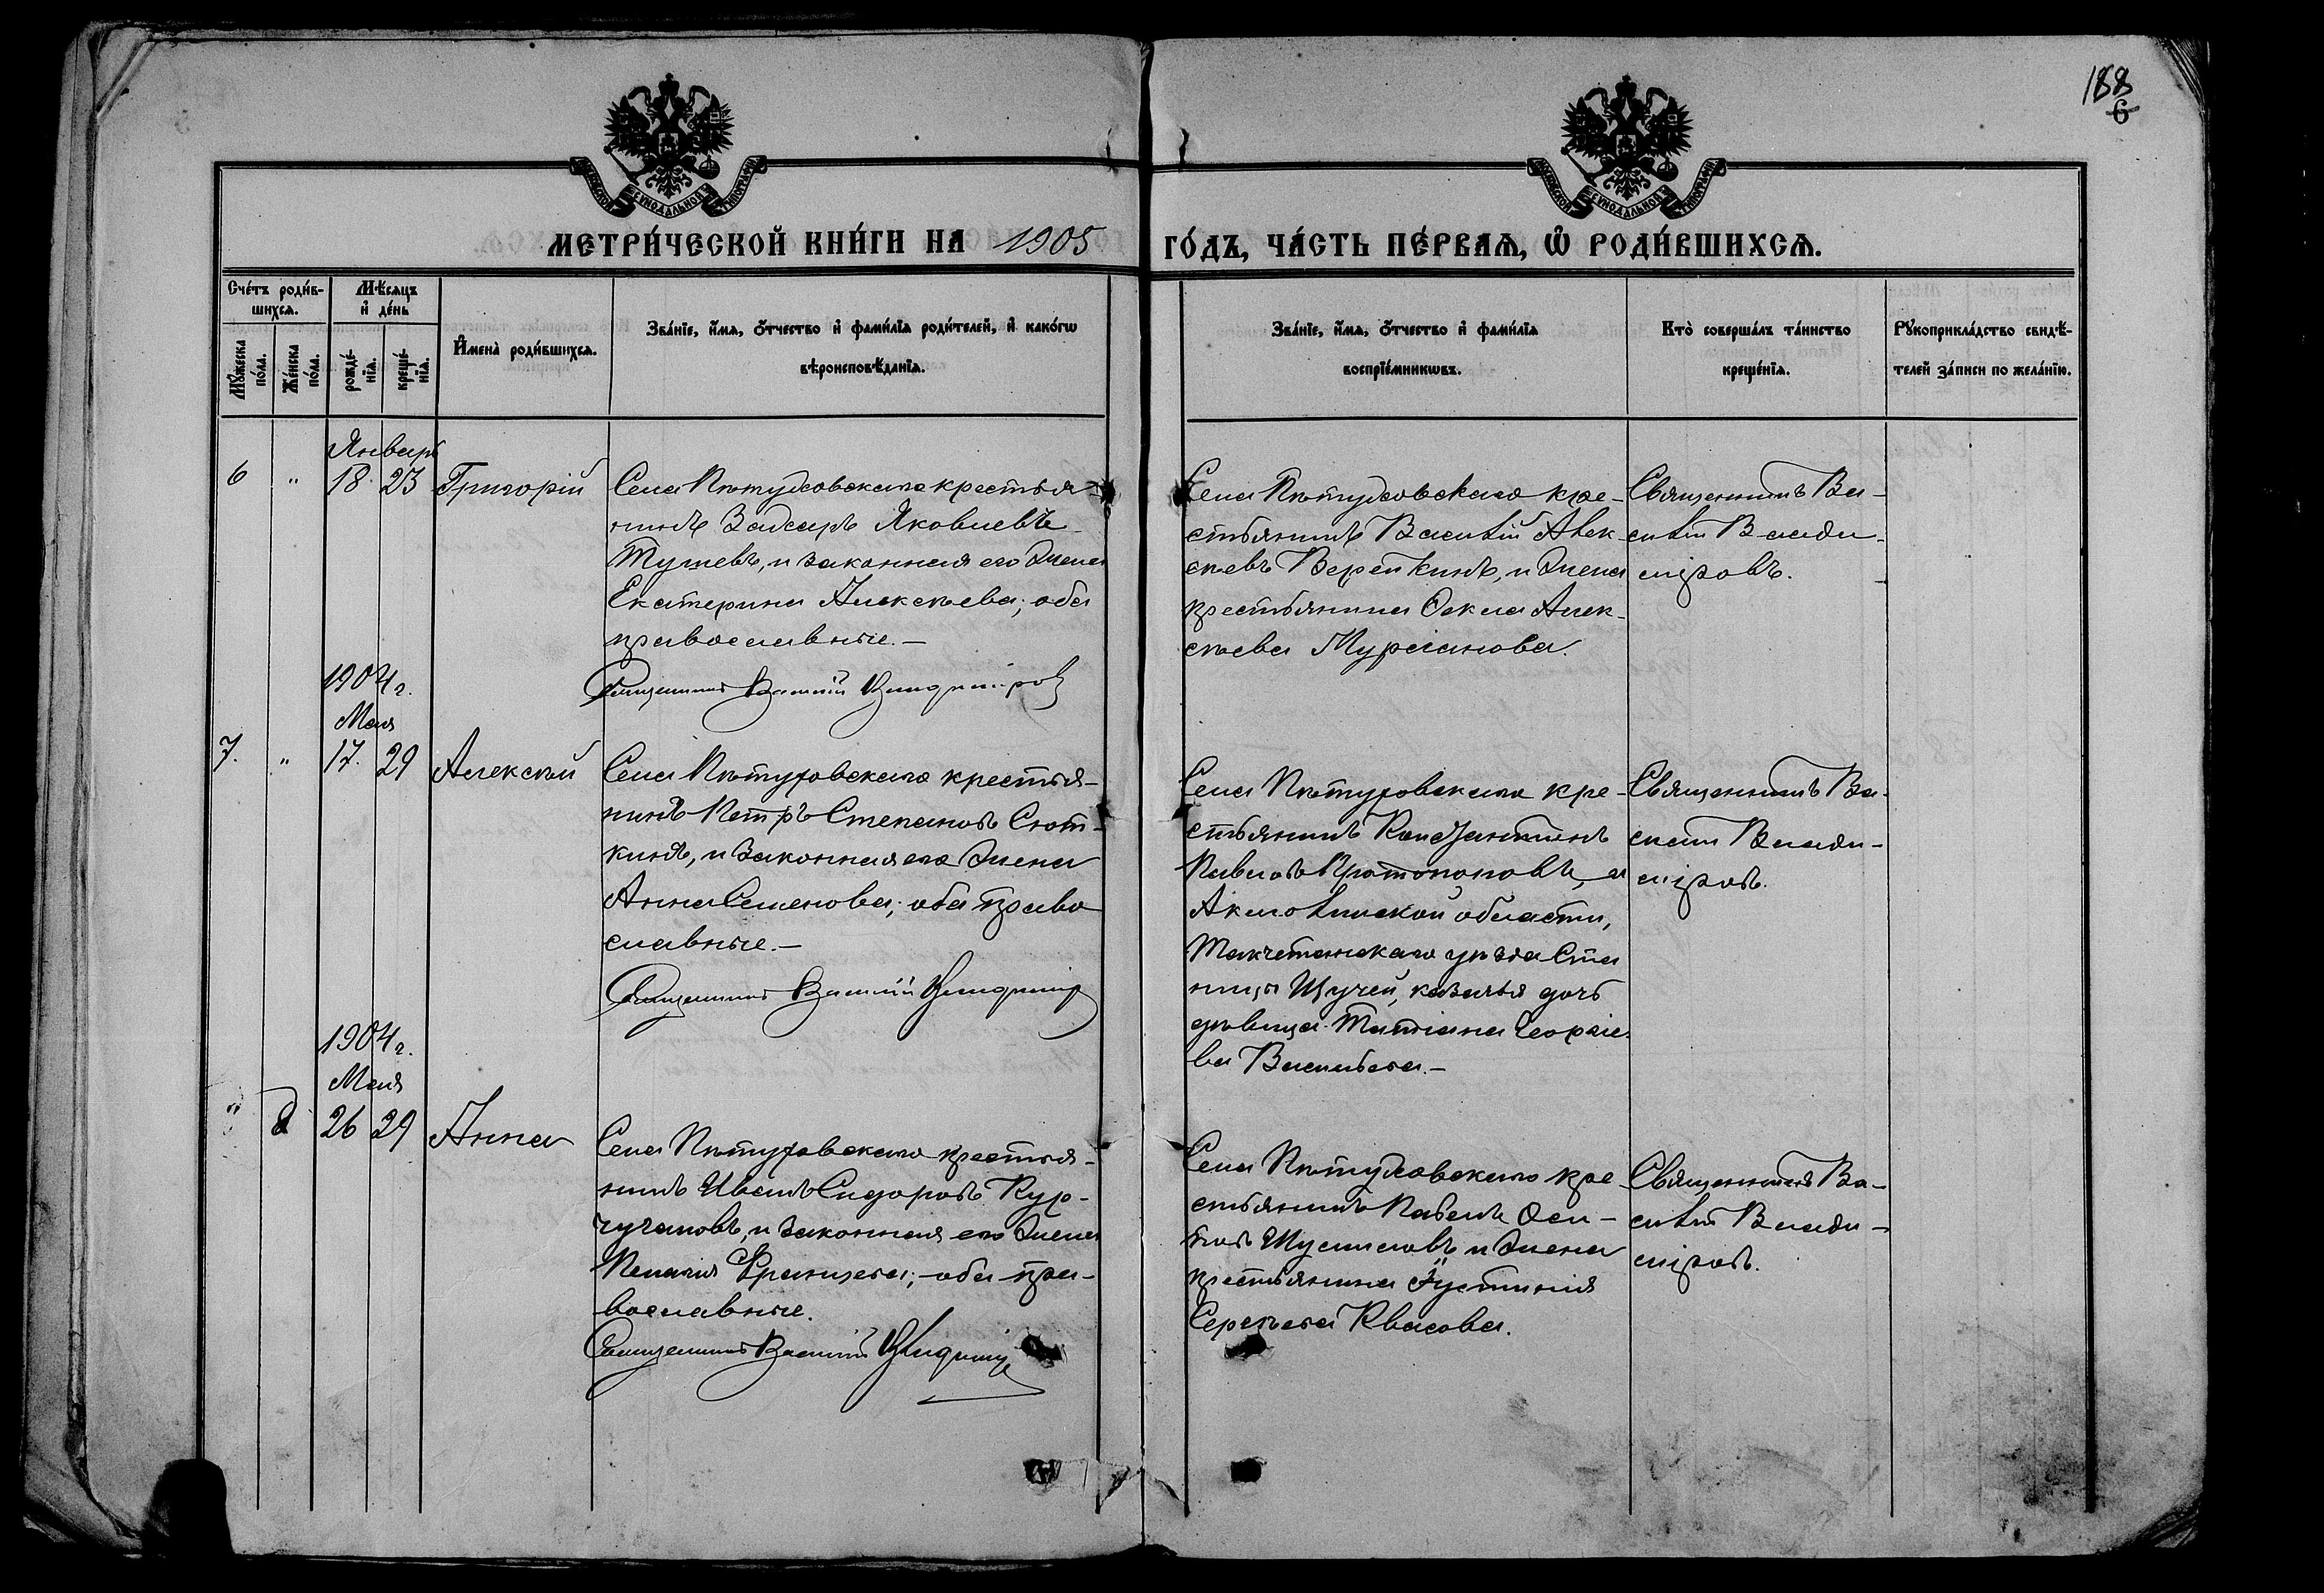 188
6
МОСКОВСКОЙ СѴНОДАЛЬНОЙ ТИПОГРАФІИ
МОСКОВСКОЙ СѴНОДАЛЬНОЙ ТИПОГРАФІИ
МЕТРИ́ЧЕСКОЙ КНИ́ГИ НА 1905 ГО́ДЪ, ЧА́СТЬ ПЕ́РВАѦ, Ѽ РОДИ́ВШИХСѦ.
Сче́тъ роди́в-
шихсѧ.
Мꙋ́жеска по́ла.
Же́нска по́ла.
Мѣ́сѧцъ и҆ де́нь
рожде́-нїѧ.
креще́-нїѧ.
И҆мена̀ роди́вшихсѧ.
Зва́нїе, и҆́мѧ, ѻ҆́тчество и҆ фами́лїѧ роди́телей, и҆ како́гѡ
вѣроисповѣ́данїѧ.
Зва́нїе, и҆́мѧ, ѻ҆́тчество и҆ фами́лїѧ
воспрїе́мникѡвъ.
Кто̀ соверша́лъ та́инство
креще́нїѧ.
Рꙋкоприкла́дство свидѣ́-
телей за́писи по жела́нїю.
Январь
6 " 18. 23 Григорій
Села Пѣтуховскаго крестья-
нинъ Захаръ Яковлевъ
Тушевъ, и законная его жена
Екатерина Алексѣева; оба
православные. —
Священникъ Василій Владиміров
Села Пѣтуховскаго кре-
стьянинъ Василій Алек-
сѣевъ Верейкинъ, и жена
крестьянина Фекла Алек-
сѣева Мурсанова.
Священникъ Ва-
силій Влади-
міровъ.
1904 г.
Мая
7. " 17. 29 Алексѣй
Села Пѣтуховскаго крестья-
нинъ Петръ Степановъ Сют-
кинъ, и законная его жена
Анна Семенова; оба право
славные. —
Священникъ Василій Владимір
Села Пѣтуховскаго кре-
стьянинъ Константинъ
Павловъ Протопоповъ, и
Акмолинской области,
уѣзда Ста
ницы Щучей, казачья дочь
дѣвица Татіана Георгіе-
ва Васильева. —
Священникъ Ва-
силій Влади-
міровъ.
1904 г.
Мая
" 2 26 29 Анна
Села Пѣтуховскаго крестья-
нинъ Иванъ Сидоровъ Кур-
чугановъ, и законная его жена
Пелагія Францева; - оба пра-
вославные.
Священникъ Василій Владимір
Села Пѣтуховскаго кре
стьянинъ Павелъ Оси-
повъ и жена
крестьянина Іустинія
Сергѣева Квасова.
Священникъ Ва-
силій Влади-
міровъ.